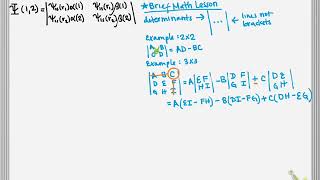 Ψ(1,2) = | Ψ₁(r₁)α(1) Ψ₁(r₁)β(1) |
| Ψ₁(r₂)α(2) Ψ₁(r₂)β(2) |
*Brief Math Lesson
determinants → | ... | ← lines not brackets
Example: 2x2
| A B |
| C D | = AD - BC
Example: 3x3
| A B C |
| D E F |
| G H I | = A | E F | - B | D F | + C | D E |
| H I | | G I | | G H |
= A(EI - FH) - B(DI - FG) + C(DH - EG)